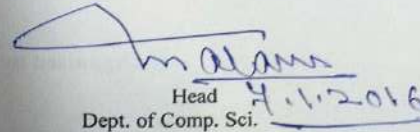 Head 7.1.2016
Dept. of Comp. Sci.